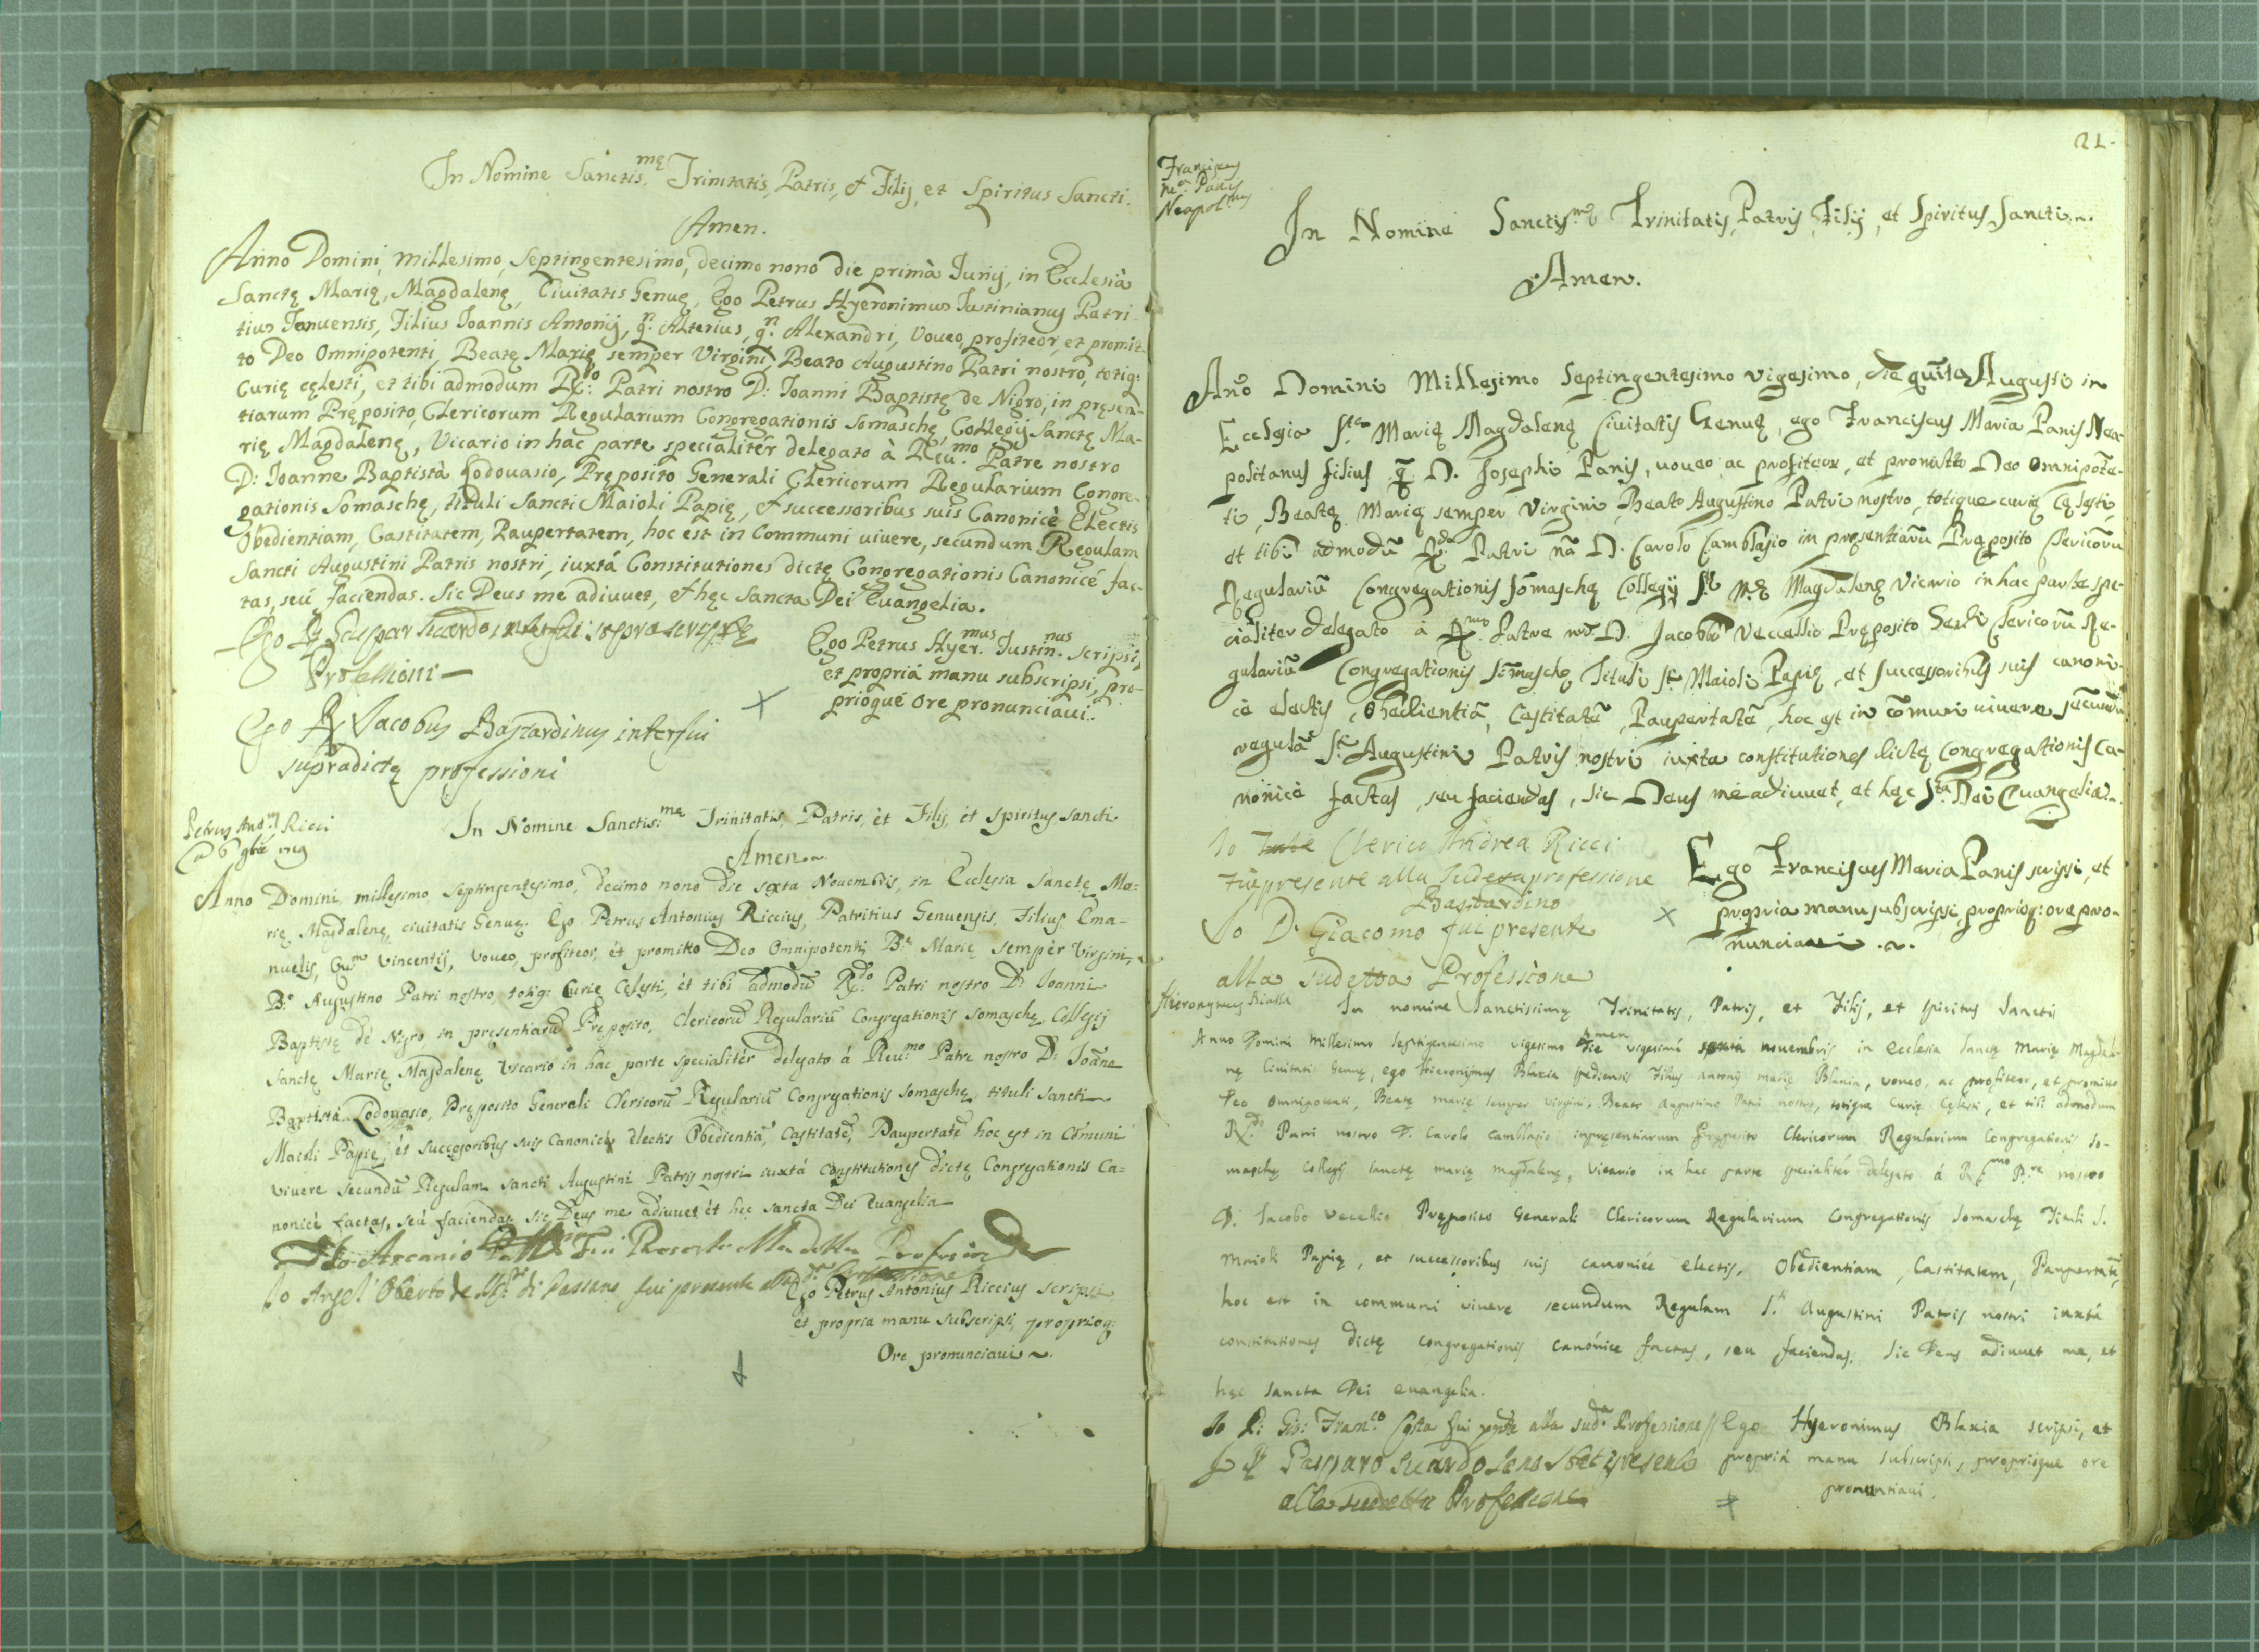 In Nomine Sanctis.mę Trinitatis, Patris, et Filij, et Spiritus Sancti.
Amen.
Anno Domini millesimo, septingentesimo, decimo nono die primà Iunij, in Ecclesià
Sanctę Marię, Magdalenę, Ciuitatis Genuę, Ego Petrus Hyeronimus Iustinianus Patri-
tius Ianuensis, Filius Ioannis Antonij, q.n Alterius, q.n Alexandri, Voueo, profiteor, et promit-
to Deo Omnipotenti, Beatę Marię semper Virgini, Beato Augustino Patri nostro, totiq:
Curię cęlesti, et tibi admodum R.do Patri nostro D: Ioanni Baptistę de Nigro, in pręsen-
tiarum Pręposito, Clericorum Regularium Congregationis Somaschę, Collegij Sanctę Ma-
rię Magdalenę, Vicario in hác parte specialitér delegato à Reu.mo Patre nostro
D: Ioanne Baptistà Lodouasio, Pręposito Generali Clericorum Regularium Congre-
gationis Somaschę, tituli Sancti Maioli Papię, et successoribus suis Canonicè Electis
Obedientiam, Castitatem, Paupertatem, hoc est in Communi uiuere, secundum Regulam
Sancti Augustini Patris nostri, iuxtá Constitutiones dictę Congregationis Canonicé fac-
tas, seú faciendas. Sic Deus me adiuuet, et hęc Sancta Dei Euangelia.
Ego D. Gaspar Suardo interfui suprascriptę
Professioni
Ego Petrus Hyer.mus Iustin.nus scripsi,
et propriá manu subscripsi, pro-
prioqué ore pronunciaui.
Ego D. Jacobus Bastardinus interfui
supradictę professioni
Petrus Ant.us Ricci
In Nomine Sanctis:me Trinitatis, Patris, èt Filij, èt Spiritus Sancti
Amen.
Anno Domini millesimo septingentesimo, decimo nono die sexta Nouembris, in Ecclesia Sanctę Ma=
rię Magdalenę, ciuitatis Genuę. Ego Petrus Antonius Riccius, Patritius Genuensis, Filius Ema-
nuelis, Qu.m Vincentij, voueo, profiteor, èt promitto Deo Omnipotenti, B.ę Marię sempèr Virgini,
B.o Augustino Patri nostro, totiq: Curię Cęlesti, èt tibi admodū R.do Patri nostro D: Ioanni
Baptistę dè Nigro in presentiarū Pręposito, Clericorū Regulariū Congregationis Somaschę, Collegij
Sanctę Marię Magdalenę Vicario in hác parte specialitér delegato á Reu.mo Patre nostro D: Ioāne
Baptistà Lodouasio, Pręposito Generali Clericorū Regulariū Congregationis Somaschę, tituli Sancti
Maioli Papię, èt Successoribus suis Canonicè electis Obedientiā, Castitatē, Paupertatē hoc est in Cōmuni
viuere secundū Regulam Sancti Augustini Patris nostri iuxtá Constitutiones dictę Congregationis Ca=
nonicè factas, seú faciendas, sic Deus me adiuuet èt hęc Sancta Dei Euangelia
Io Ascanio Fui Presente alla detta Professione
Io Angel' Oberto de di Passano fui presente alla d.a Professione
Ego Petrus Antonius Riccius scripsi
èt propria manu subscripsi, proprioq:
Ore pronunciaui.
21.
Franciscus
M.a Panis
Neapol.nus
In Nomine Sanctis.mę Trinitatis, Patris, Filij, et Spiritus Sancti.
Amen.
Año Domini Millesimo Septingentesimo vigesimo, die quīta Augusti in
Ecclesia S.tę Marię Magdalenę Ciuitatis Genuę, ego Franciscus Maria Panis Nea-
politanus filius q. D. Josephi Panis, uoueo ac profiteor, et promitto Deo omnipotē-
ti, Beatę Marię semper Virgini, Beato Augustino Patri nostro, totique curię cęlesti,
et tibi admodū R.do Patri nr̄o D. Carolo Camblasio in pręsentiarū Pręposito Clericorū
Regulariū Congregationis Somaschę Collegij S.tę M.ę Magdalenę Vicario in hac parte spe-
cialiter delegato à R.mo Patre nr̄o D. Jacobo Veccellio Pręposito Genli Clericorū Re-
gulariū Congregationis Somaschę Tituli S.ti Maioli Papię, et successoribus suis canoni-
cè electis, obedientiā, Castitatē, Paupertatē, hoc est in cōmuni uiuere secundū
regulā S.ti Augustini Patris nostri iuxta constitutiones dictę Congregationis Ca-
nonicè factas, seu faciendas, sic Deus me adiuuet, et hęc S.ta Dei Euangelia.
Io Clerico Andrea Ricci
fui presente alla sudetta professione
Bastardino
Io D. Giacomo fui presente
alla sudetta Professione
Ego Franciscus Maria Panis scripsi, et
propria manu subscripsi, proprioq: ore pro-
nunciaui.
Hieronymus Blasia
In nomine Sanctissimę Trinitatis, Patris, et Filij, et Spiritus Sancti
Amen
Anno Domini millesimo septigentesimo vigesimo die vigesimá nouembris in Ecclesia Sanctę Marię Magdale-
nę Ciuitatis Genuę, ego Hieronymus Blaxia Filius Antonij Marię Blaxia, voueo, ac profiteor, et promitto
Deo omnipotenti, Beatę Marię semper Virgini, Beato Augustino Patri nostro, totique Curię Cęlesti, et tibi admodum
R.do Patri nostro D. Carolo Camblasio inpręsentiarum Pręposito Clericorum Regularium Congregationis So-
maschę Collegij Sanctę Marię Magdalenę, Vicario in hac parte specialitér delegato á R.mo P.re nostro
D. Iacobo Vecellio Pręposito Generali Clericorum Regularium Congregationis Somaschę Tituli S.
Maioli Papię, et successoribus suis canonicé electis, Obedientiam, Castitatem, Paupertatē,
hoc est in communi viuere secundum Regulam S.ti Augustini Patris nostri iuxtá
constitutiones dictę congregationis canónice factas, seu faciendas. Sic Deus adiuuet me, et
hęc Sancta Dei euangelia.
Io D: Gio: Fran.co Costa fui pńte alla sud.a Professione // Ego Hyeronimus Blaxia scripsi, et
Io D. Gasparo Suardo presente propriá manu subscripsi, proprióque ore
alla sudetta Professione pronuntiaui.